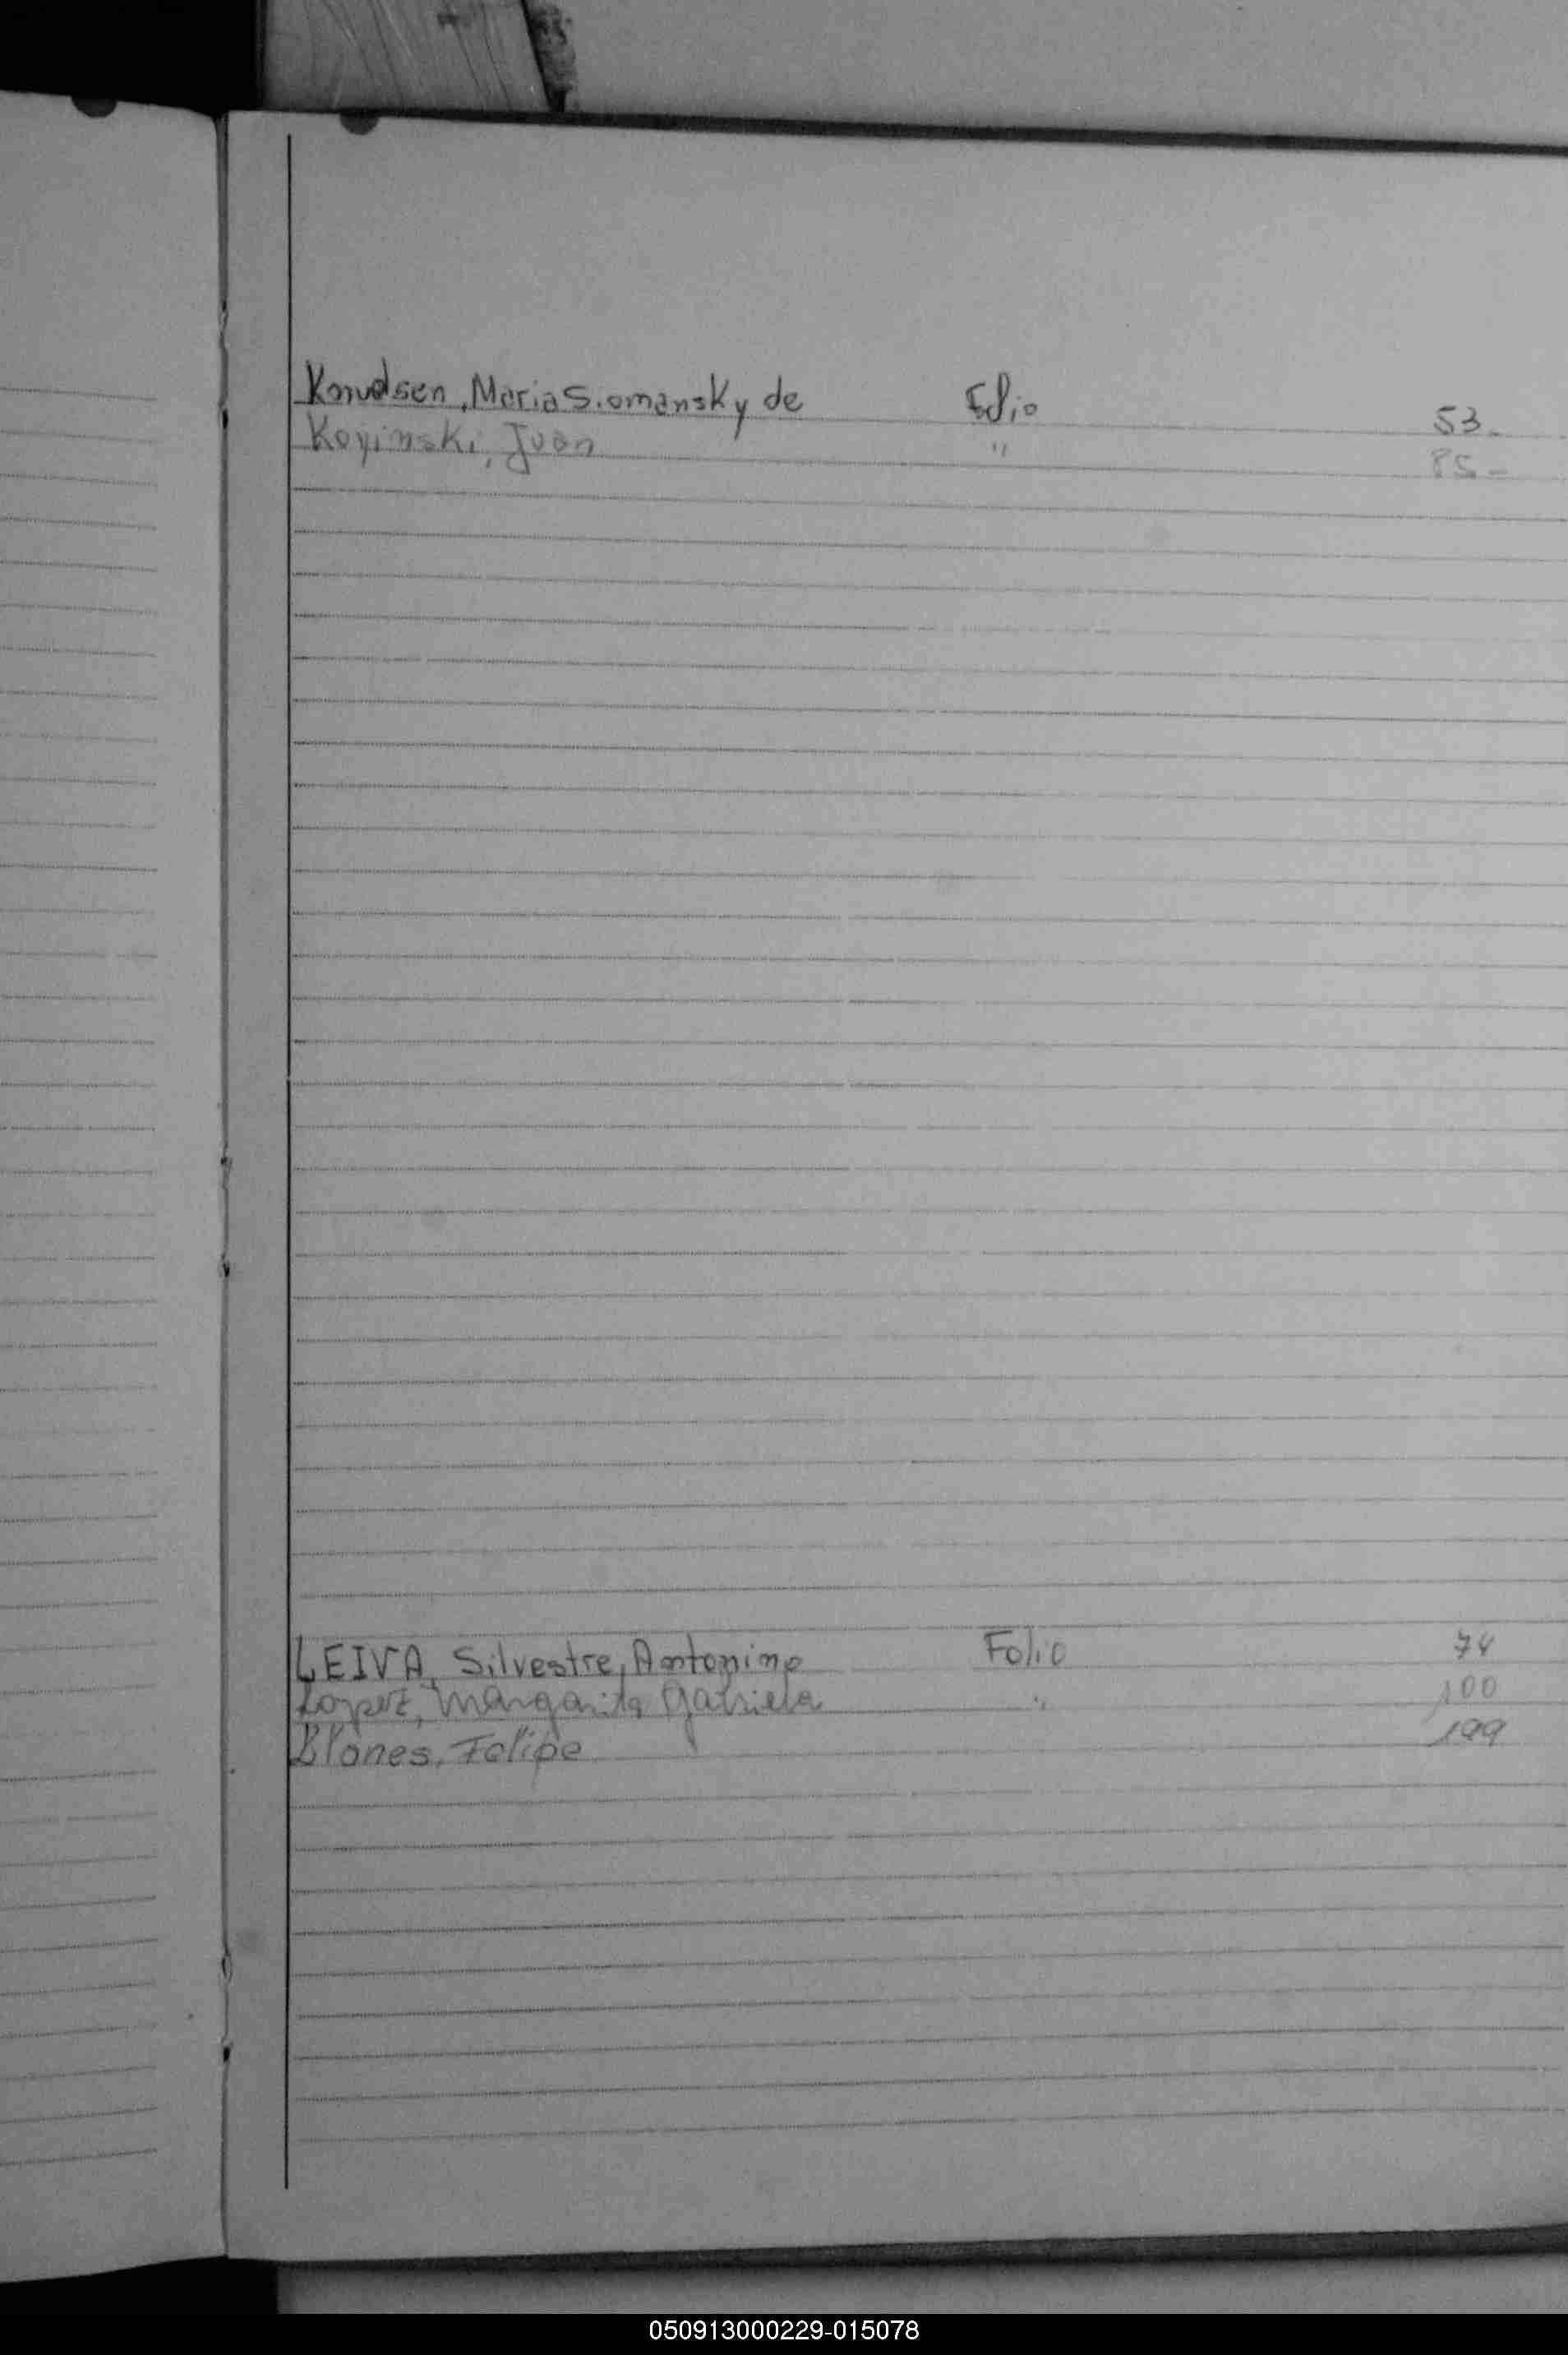 Knudsen, Maria Siomansky de Folio 53-
Koyinski, Juan " 85-
LEIVA, Silvestre, Antonino Folio 74
Lopez, Margarita Gabriela " 100
Llanes, Felipe 199
050913000229-015078